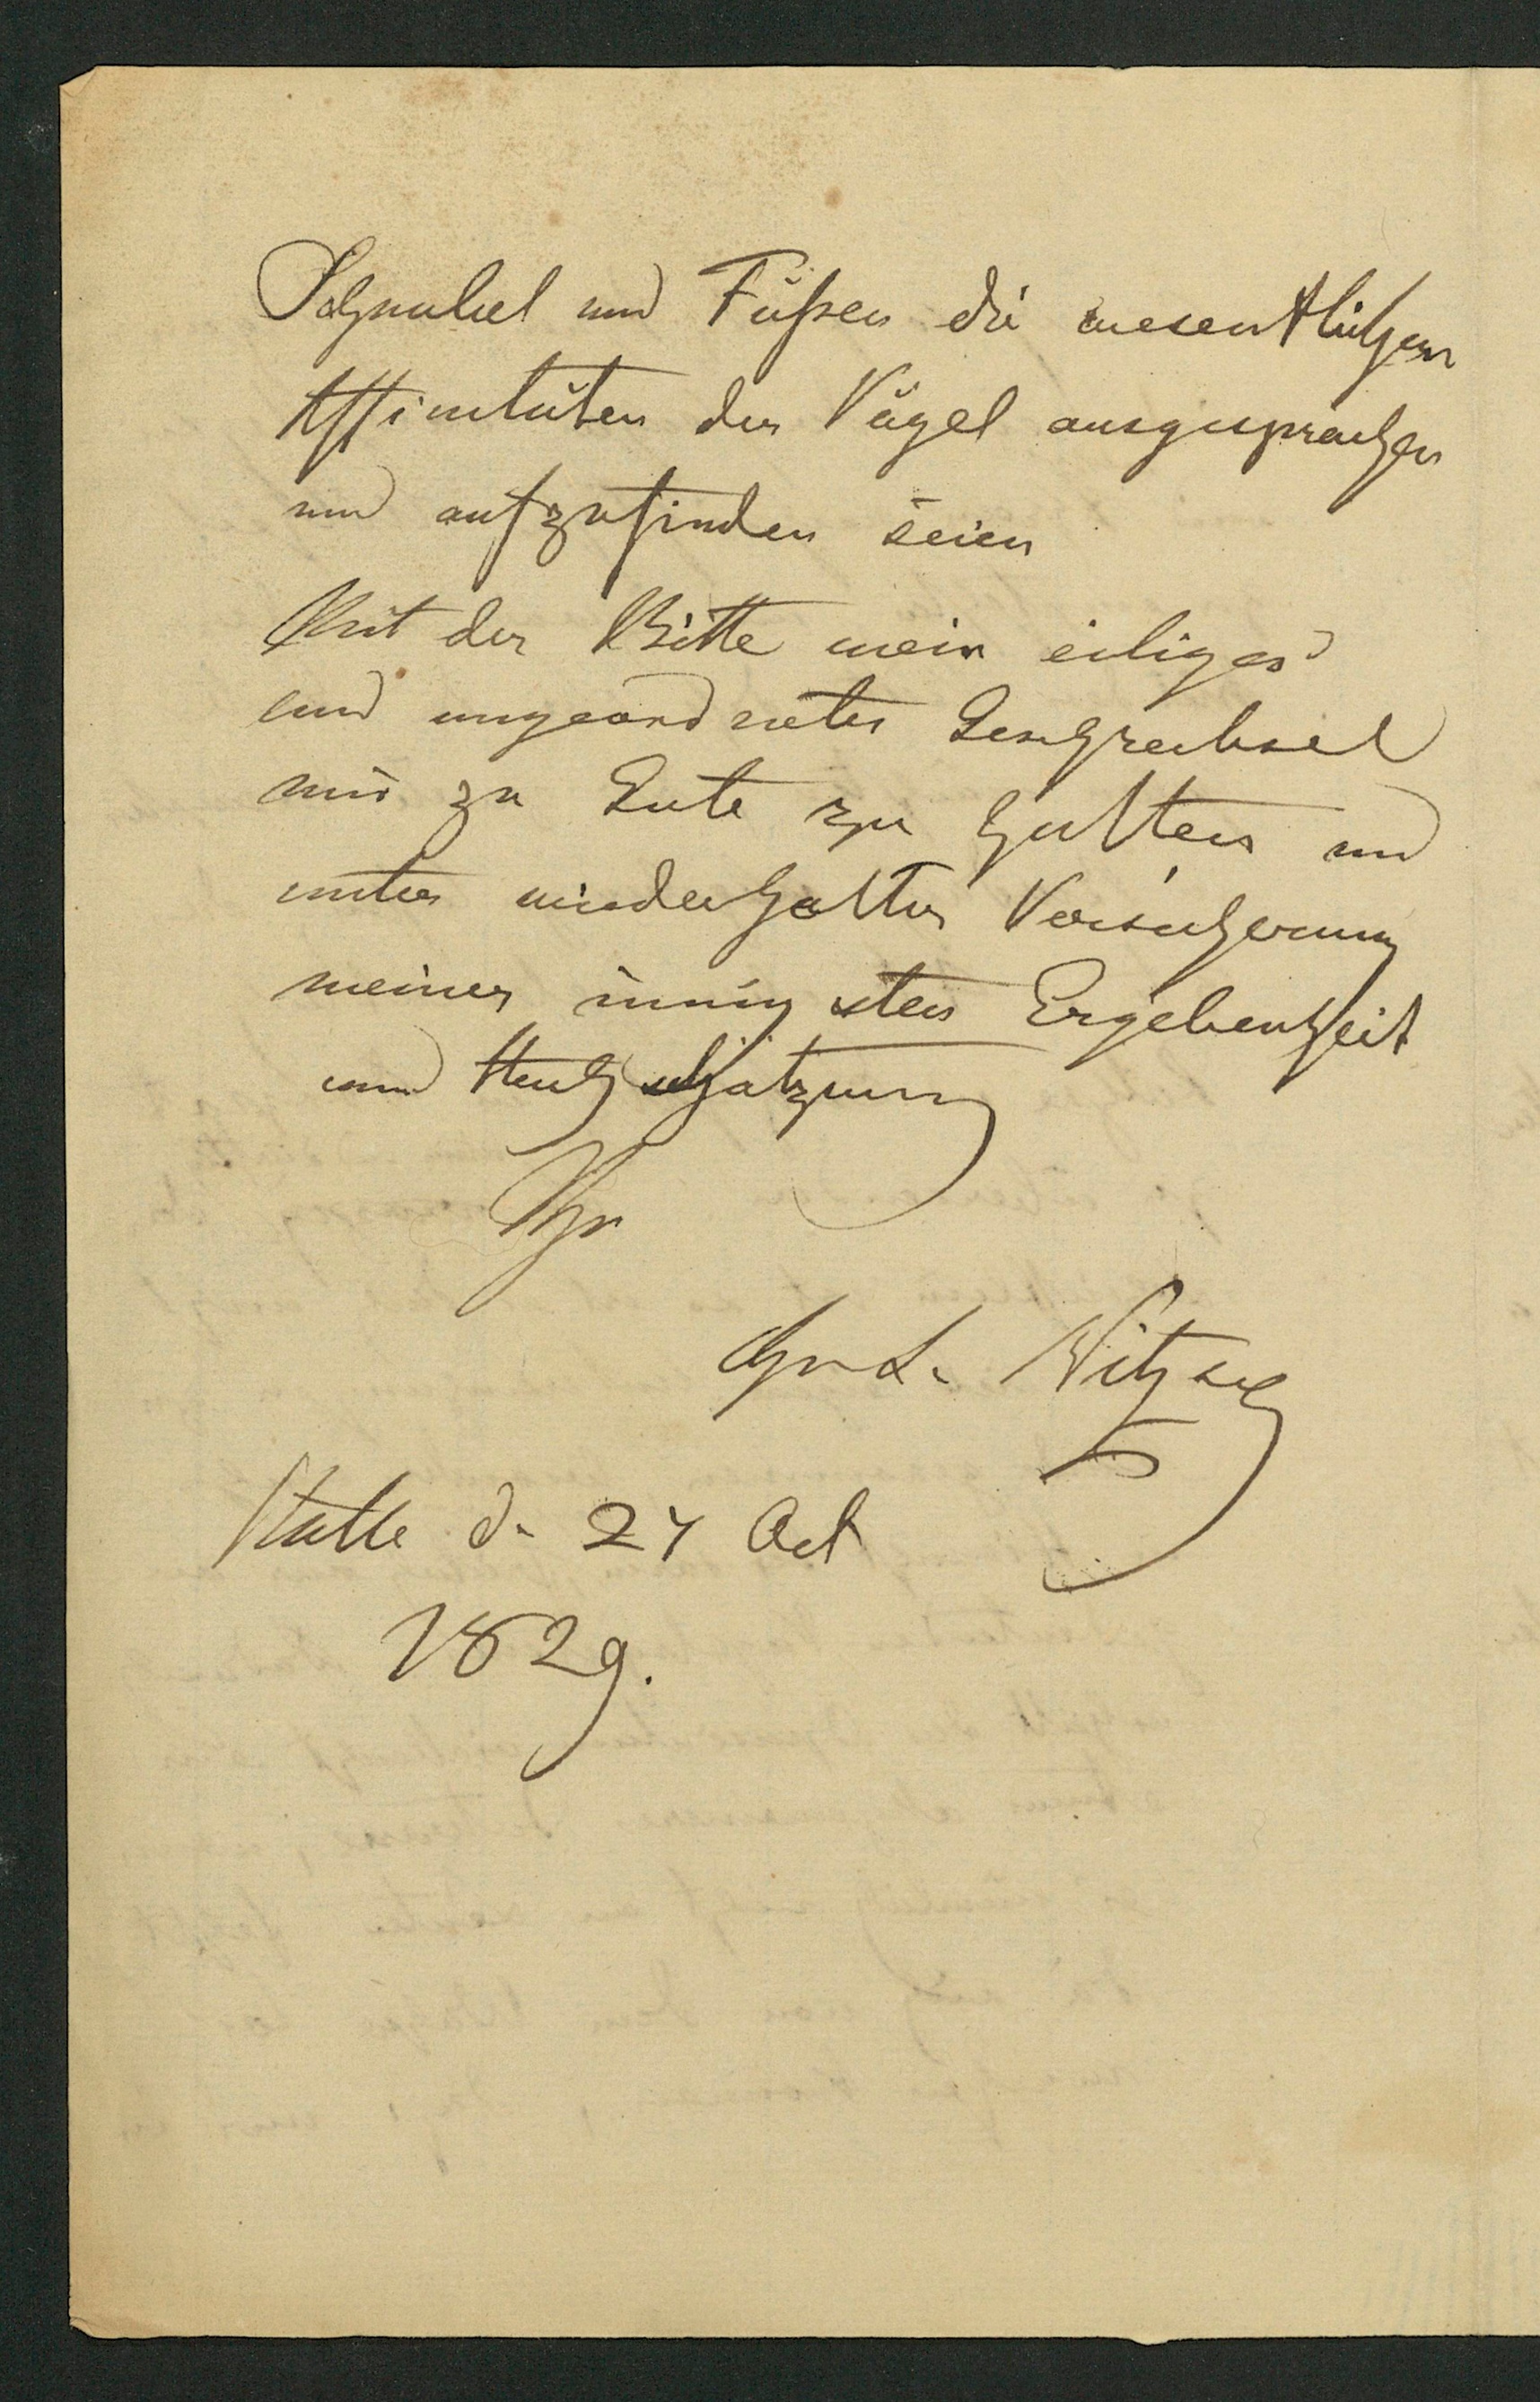 Schnabel und Füßen die wesentlichen
Affinitäten der Vögel ausgesprochen
und aufzufinden seien
Mit der Bitte mein eiliges
und ungeordnetes Geschreibsel
mir zu Gute zu halten und
unter wiederholter Versicherung
meiner innigsten Ergebenheit
und Hochschätzung
Ihr
Chr L. Nitzsch
Halle d. 27 Oct
1829.